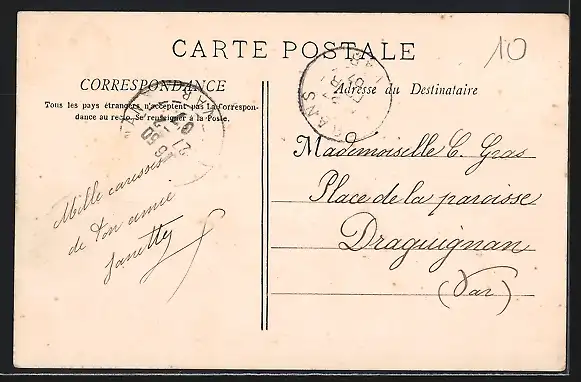 CARTE POSTALE
10
CORRESPONDANCE
Tous les pays étrangers n'acceptent pas la Correspon-
dance au recto. Se renseigner à la Poste.
Adresse du Destinataire
Mille caresses
de ton amie
Janette
Mademoiselle C. Gras
Place de la paroisse
Draguignan
(Var)